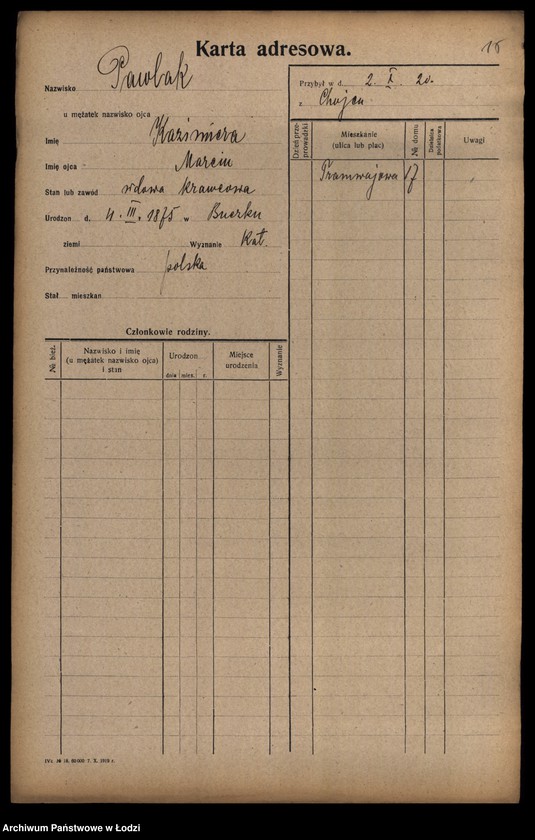 Karta adresowa.
15
Nazwisko Pawlak
u mężatek nazwisko ojca
Imię Kazimiera
Imię ojca Marcin
Stan lub zawód wdowa krawcowa
Urodzon d. 4. III. 1875 w
ziemi Wyznanie Kat.
Przynależność państwowa polska
Stał. mieszkan.
Przybył w d. 2. X. 20.
z Chojen
Dzień przeprowadzki
Mieszkanie
(ulica lub plac)
№ domu
Dzielnica podatkowa
Uwagi
Tramwajowa 17
Członkowie rodziny.
№ bież.
Nazwisko i imię
(u mężatek nazwisko ojca)
i stan
Urodzon
dnia mies. r.
Miejsce
urodzenia
Wyznanie
Archiwum Państwowe w Łodzi